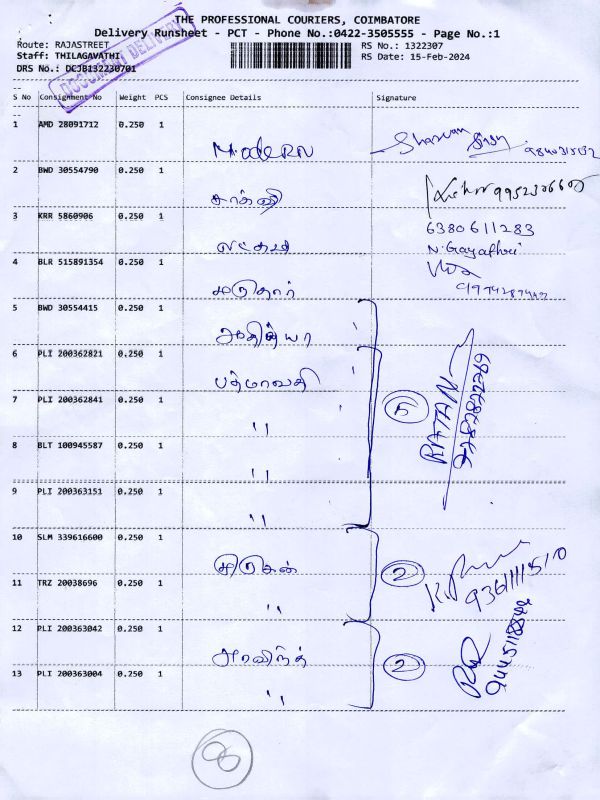 THE PROFESSIONAL COURIERS, COIMBATORE
Delivery Runsheet - PCT - Phone No.:0422-3505555 - Page No.:1
Route: RAJASTREET
RS No.: 1322307
Staff: THILAGAVATHI
RS Date: 15-Feb-2024
DRS No.: DCJB132230701
DOCUMENT DELIVERY
S No Consignment No Weight PCS Consignee Details Signature
1 AMD 28091712 0.250 1
MODERN
2 BWD 30554790 0.250 1
3 KRR 5860906 0.250 1
6380611283
N. Gayathri
4 BLR 515891354 0.250 1
5 BWD 30554415 0.250 1
6 PLI 200362821 0.250 1
பத்மாவதி
7 PLI 200362841 0.250 1
"
5
RATAN
8 BLT 100945587 0.250 1
"
9 PLI 200363151 0.250 1
"
10 SLM 339616600 0.250 1
2
11 TRZ 20038696 0.250 1
"
12 PLI 200363042 0.250 1
அரவிந்த்
2
13 PLI 200363004 0.250 1
"